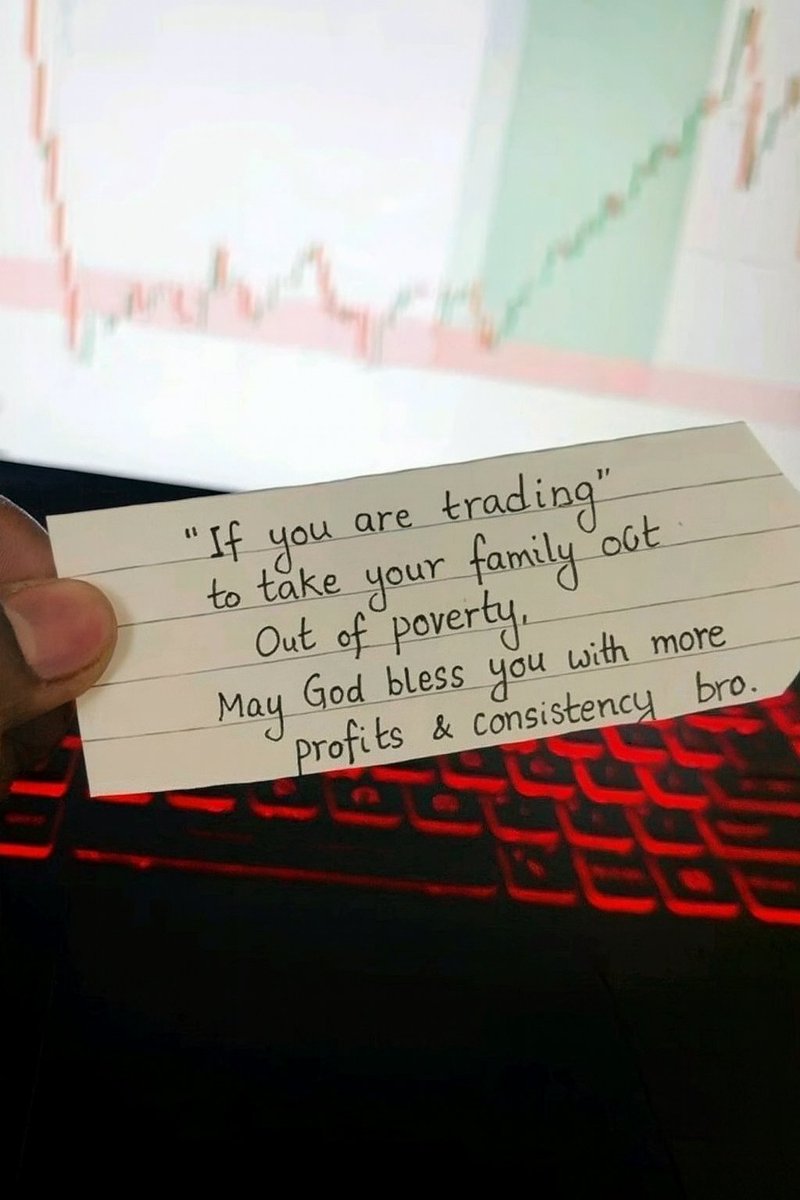 "If you are trading"
to take your family oct
Out of poverty.
May God bless you with more
profits & consistency bro.